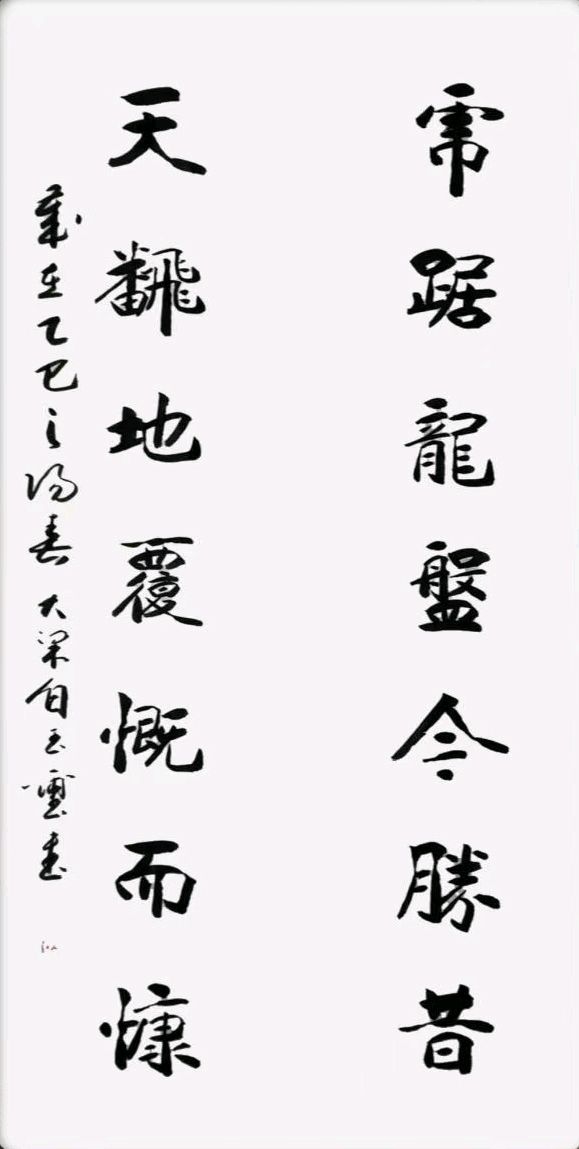 虎踞龍盤今勝昔
天翻地覆慨而慷
歲在乙巳之陽春 大梁白玉璽書